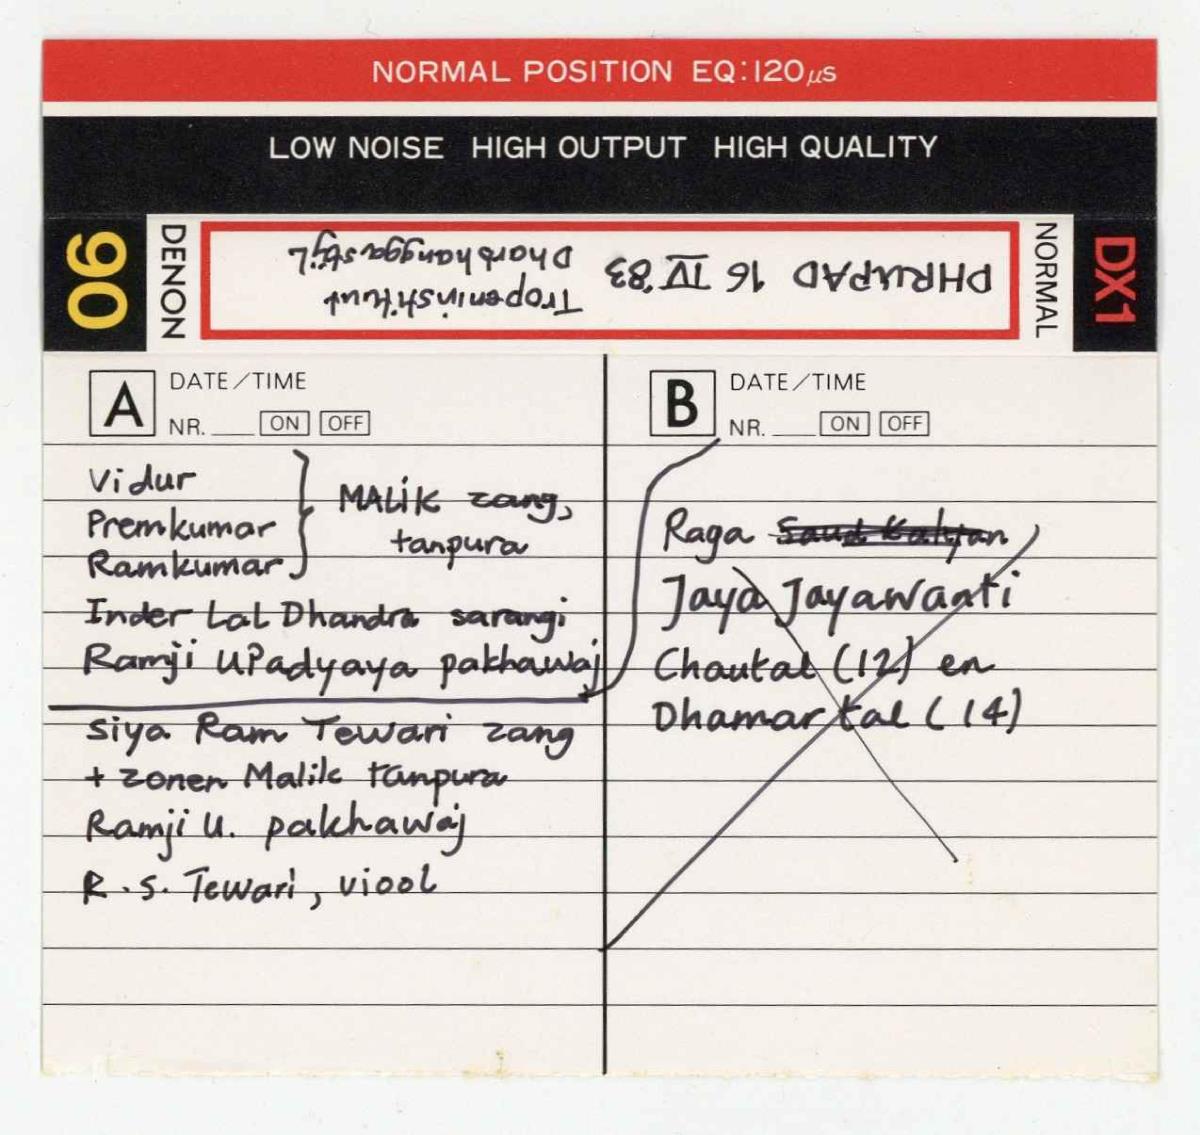 NORMAL POSITION EQ:120μs
LOW NOISE HIGH OUTPUT HIGH QUALITY
90
DENON
DHRUPAD 16 IV '83
Tropeninstituut
Dharbhanggastijl
NORMAL
DX1
A
DATE/TIME
NR. ___ ON OFF
Vidur
Premkumar
Ramkumar
MALiK zang,
tanpura
Inder Lal Dhandra sarangi
Ramji UPadyaya pakhawaj
Siya Ram Tewari zang
+ zonen Malik tanpura
Ramji U. pakhawaj
R.S. Tewari, viool
B
DATE/TIME
NR. ___ ON OFF
Raga Saud Kalyan
Jaya Jayawanti
Chautal (12) en
Dhamar tal (14)